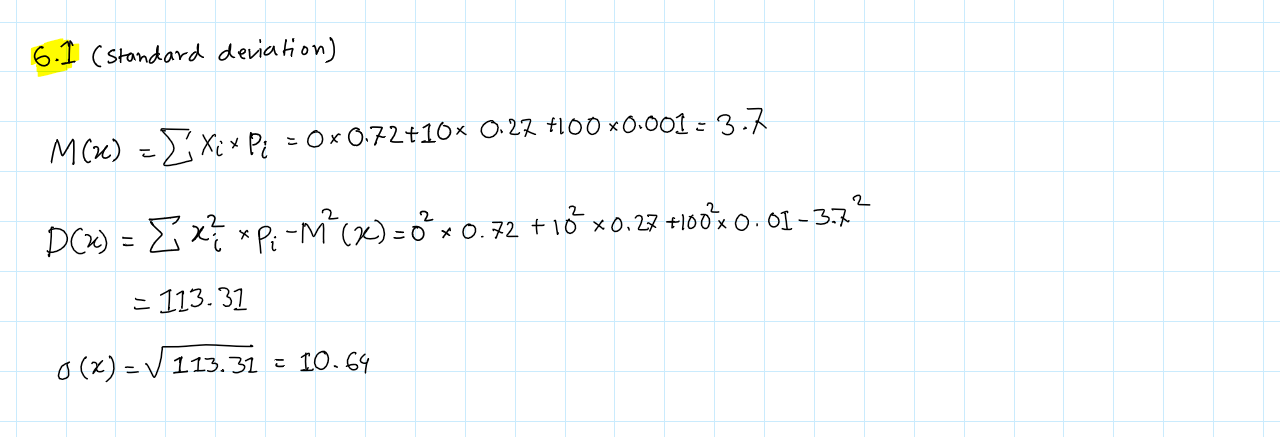 6.1 (standard deviation)
M(x) = ∑ Xᵢ × Pᵢ = 0 × 0.72 + 10 × 0.27 + 100 × 0.001 = 3.7
D(x) = ∑ xᵢ² × Pᵢ - M²(x) = 0² × 0.72 + 10² × 0.27 + 100² × 0.01 - 3.7²
= 113.31
σ(x) = √113.31 = 10.64